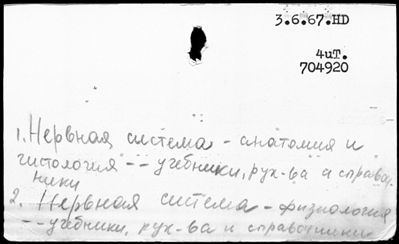 3.6.67.HD
4иT.
704920
1. Нервная система - анатомия и
гистология -- учебники, рук-ва и справоч
ники
2. Нервная система - физиология
-- учебники, рук-ва и справочники